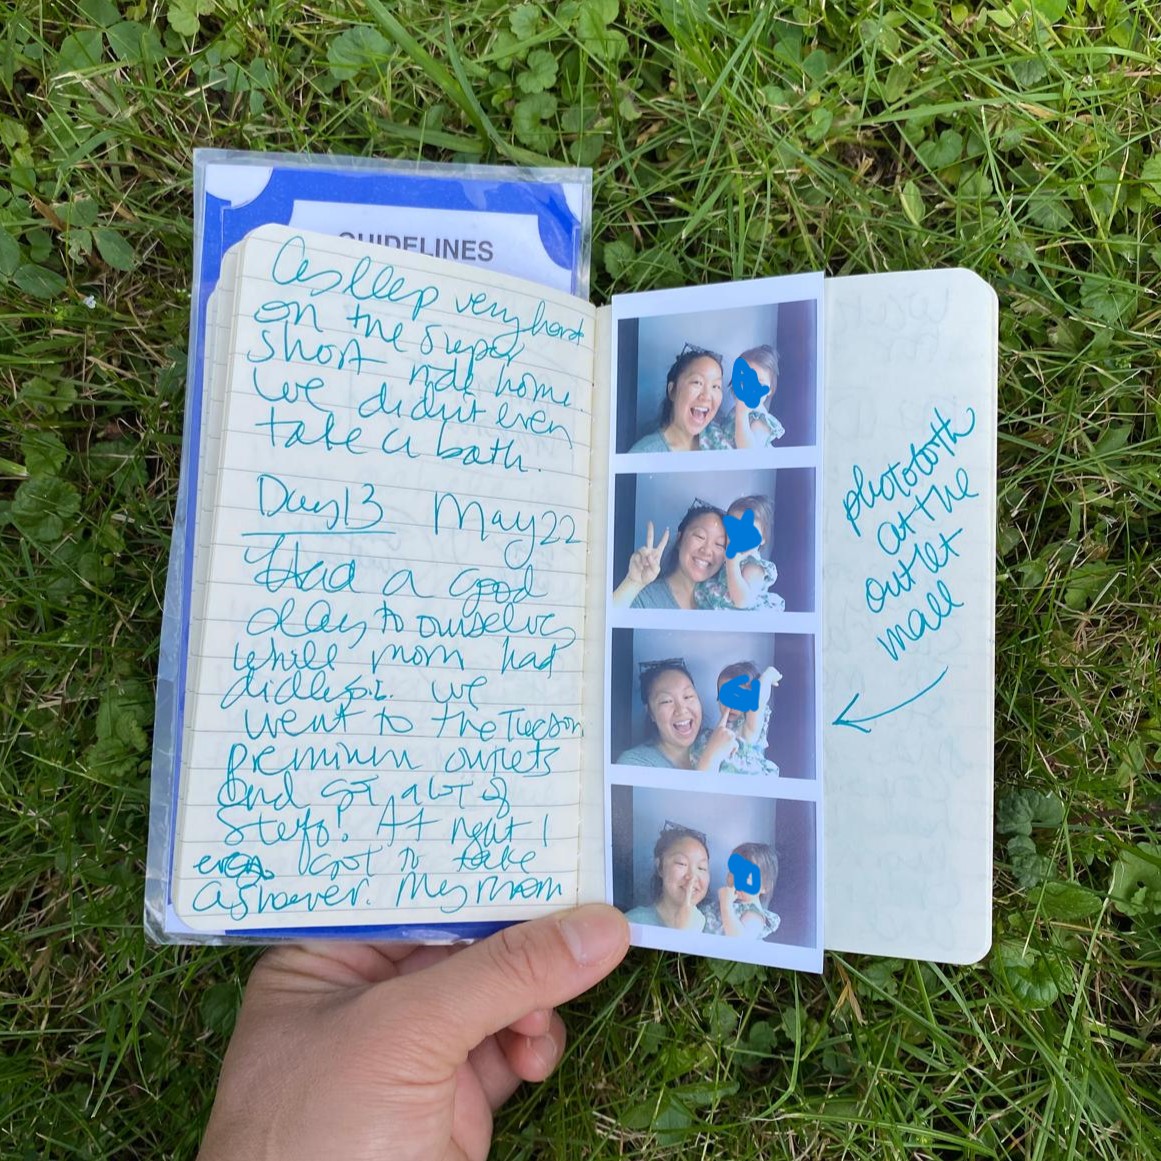 GUIDELINES
asleep very hard
on the super
short ride home.
we didn't even
take a bath.
Day 13 May 22
Had a good
day to ourselves
while mom had
we
went to the Tucson
premium outlets
and got a lot of
stuff! At night I
even got to take
a shower. My mom
photobooth
at the
outlet
mall